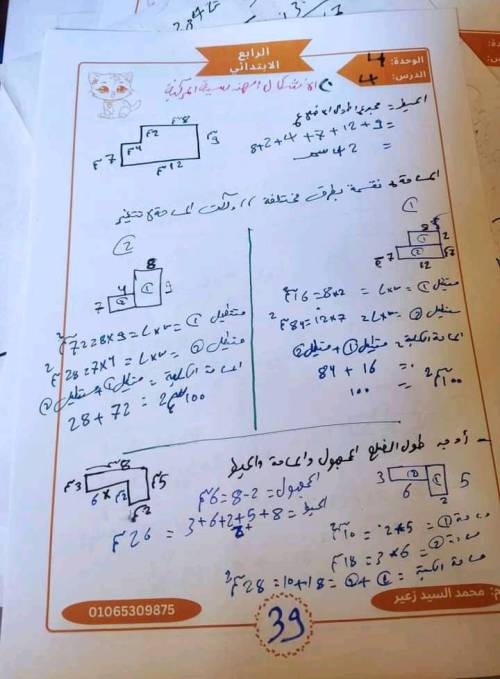 الرابع
الابتدائي
الوحدة: 4
الدرس: 4
الأشكال الهندسية المركبة
المحيط = مجموع أطوال الأضلاع
8+2+4+7+12+9 =
= 42 سم
م8
م2
م4
م7
م9
م12
المساحة نقسمه بطرق مختلفة // ولكن المساحة لا تتغير
①
8
①
2
②
7
12
مستطيل ① = L×W = 8×2 = 16 م²
مستطيل ② = L×W = 12×7 = 84 م²
المساحة الكلية = مستطيل ① + مستطيل ②
84 + 16 =
100 =
100 م²
②
8
4
①
9
7
②
مستطيل ① = L×W = 9×8 = 72 م²
مستطيل ② = L×W = 4×7 = 28 م²
المساحة الكلية = مستطيل ① + مستطيل ②
28 + 72 = 100 م²
- أوجد طول الضلع المجهول والمساحة والمحيط
م8
م3
م5
6
م2
المجهول = 8-2 = 6م
المحيط = 3+6+2+5+8
= 26 م
3
②
①
6
5
2
مساحة ① = 5×2 = 10 م²
مساحة ② = 6×3 = 18 م²
مساحة الكلية = ① + ② = 10+18 = 28 م²
01065309875
39
م: محمد السيد زعير